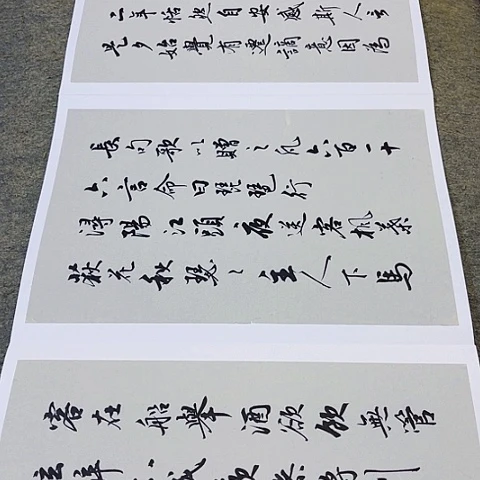 二年恬然自安感斯人言
是夕始覺有遷謫意因為
長句歌以贈之凡六百一十
六言命曰琵琶行
潯陽江頭夜送客楓葉
荻花秋瑟々主人下馬
客在船舉酒欲飲無管
絃醉不成歡慘將別